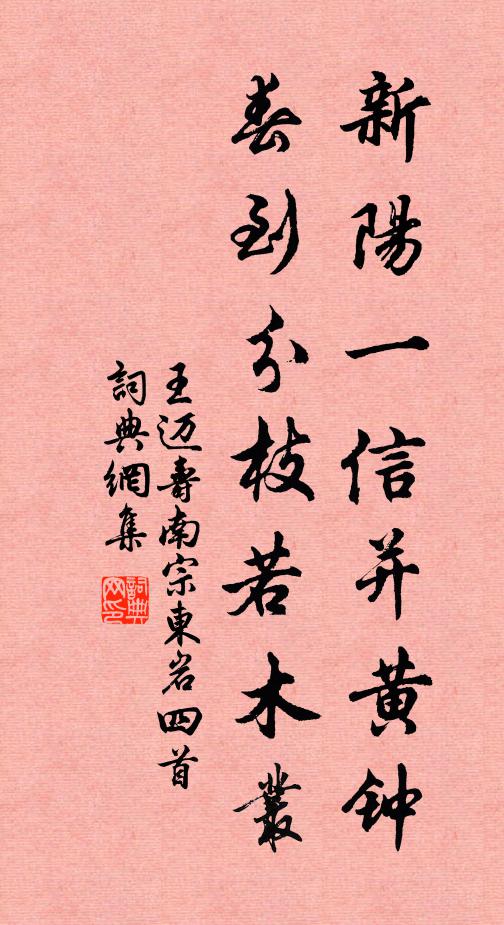 新陽一信并黄钟
春到分枝若木叢
王迈壽南宗東岩四首
詞典網集
詞典網印